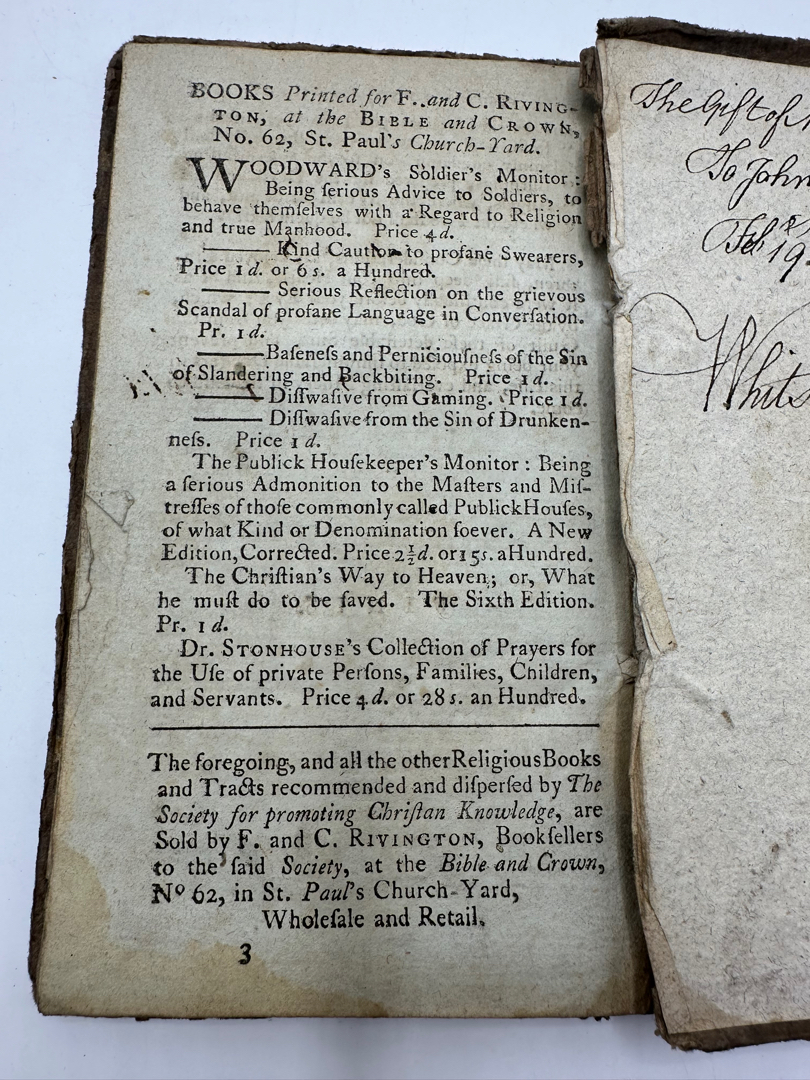 BOOKS Printed for F. and C. RIVING-
TON, at the BIBLE and CROWN,
No. 62, St. Paul's Church-Yard.
WOODWARD's Soldier's Monitor :
Being ſerious Advice to Soldiers, to
behave themſelves with a Regard to Religion
and true Manhood. Price 4 d.
——— Kind Caution to profane Swearers,
Price 1 d. or 6 s. a Hundred.
——— Serious Reflection on the grievous
Scandal of profane Language in Converſation.
Pr. 1 d.
——— Baſeneſs and Perniciouſneſs of the Sin
of Slandering and Backbiting. Price 1 d.
——— Diſſwaſive from Gaming. Price 1 d.
——— Diſſwaſive from the Sin of Drunken-
neſs. Price 1 d.
The Publick Houſekeeper's Monitor : Being
a ſerious Admonition to the Maſters and Miſ-
treſſes of thoſe commonly called Publick Houſes,
of what Kind or Denomination ſoever. A New
Edition, Corrected. Price 2½ d. or 15 s. a Hundred.
The Chriſtian's Way to Heaven ; or, What
he muſt do to be ſaved. The Sixth Edition.
Pr. 1 d.
Dr. STONHOUSE's Collection of Prayers for
the Uſe of private Perſons, Families, Children,
and Servants. Price 4 d. or 28 s. an Hundred.
The foregoing, and all the other Religious Books
and Tracts recommended and diſperſed by The
Society for promoting Chriſtian Knowledge, are
Sold by F. and C. RIVINGTON, Bookſellers
to the ſaid Society, at the Bible and Crown,
Nº 62, in St. Paul's Church-Yard,
Wholeſale and Retail.
3
The Gift of
To John
Feb
19